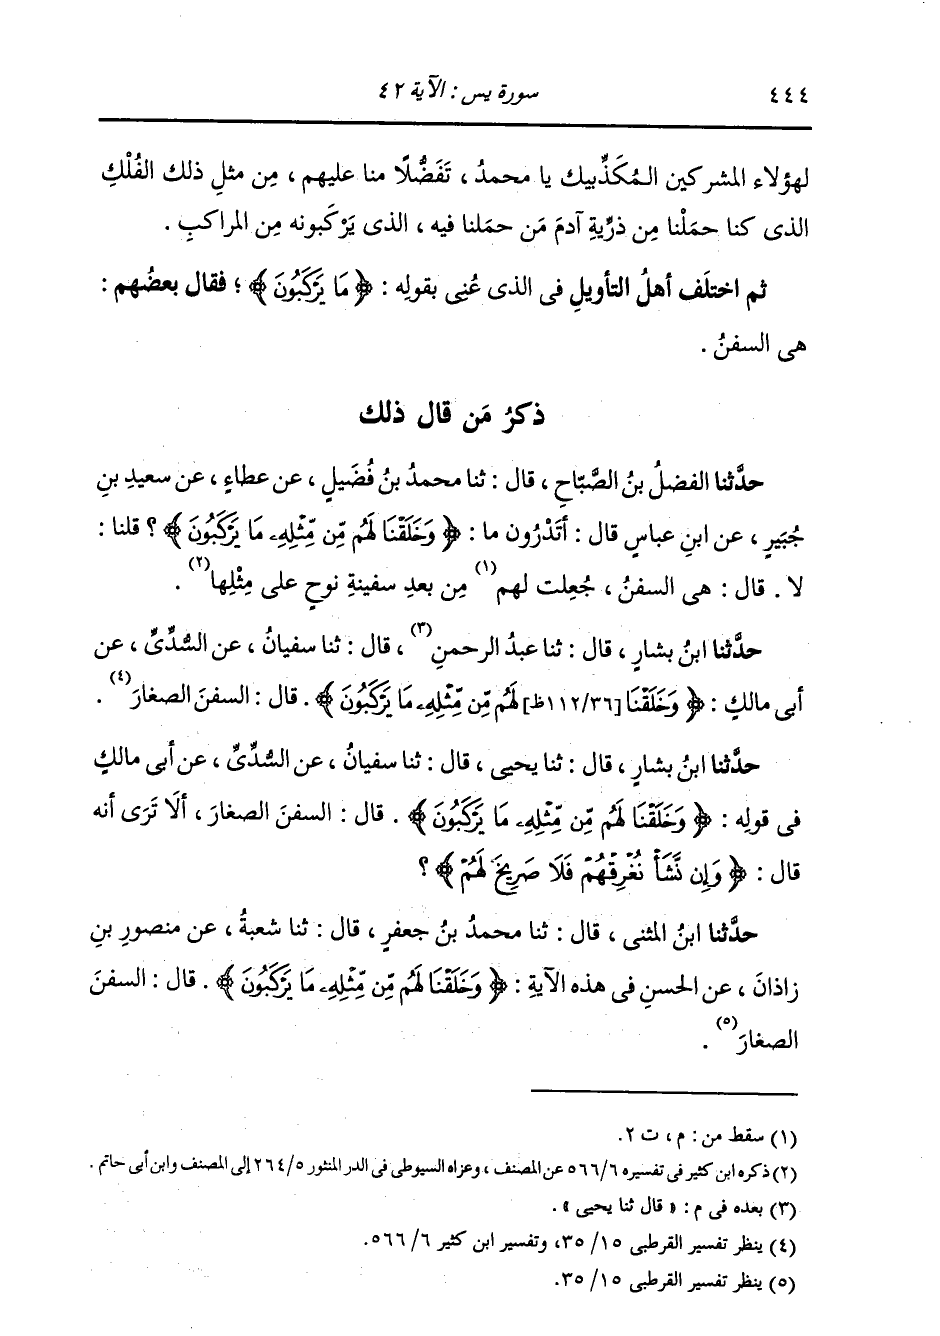 ٤٤٤
سورة يس : الآية ٤٢
لهؤلاء المشركين المُكَذِّبيك يا محمدُ ، تَفَضُّلًا منا عليهم ، مِن مثلِ ذلك الفُلْكِ
الذى كنا حمَلْنا مِن ذرِّيةِ آدمَ مَن حمَلنا فيه ، الذى يَرْكَبونه مِن المراكبِ .
ثم اختلَف أهلُ التأويلِ فى الذى عُنِى بقولِه : ﴿ مَا يَرْكَبُونَ ﴾ ؛ فقال بعضُهم :
هى السفنُ .
ذكرُ مَن قال ذلك
حدَّثنا الفضلُ بنُ الصَّبّاحِ ، قال : ثنا محمدُ بنُ فُضَيلٍ ، عن عطاءٍ ، عن سعيدِ بنِ
جُبَيرٍ ، عن ابنِ عباسٍ قال : أتَدْرُون ما : ﴿ وَخَلَقْنَا لَهُم مِّن مِّثْلِهِۦ مَا يَرْكَبُونَ ﴾ ؟ قلنا :
لا . قال : هى السفنُ ، جُعِلت لهم(١) مِن بعدِ سفينةِ نوحٍ على مِثْلِها(٢) .
حدَّثنا ابنُ بشارٍ ، قال : ثنا عبدُ الرحمنِ(٣) ، قال : ثنا سفيانُ ، عن السُّدِّىِّ ، عن
أبى مالكٍ : ﴿ وَخَلَقْنَا [١١٢/٣٦ظ] لَهُم مِّن مِّثْلِهِۦ مَا يَرْكَبُونَ ﴾ . قال : السفنَ الصغارَ(٤) .
حدَّثنا ابنُ بشارٍ ، قال : ثنا يحيى ، قال : ثنا سفيانُ ، عن السُّدِّىِّ ، عن أبى مالكٍ
فى قولِه : ﴿ وَخَلَقْنَا لَهُم مِّن مِّثْلِهِۦ مَا يَرْكَبُونَ ﴾ . قال : السفنَ الصغارَ ، ألَا تَرَى أنه
قال : ﴿ وَإِن نَّشَأْ نُغْرِقْهُمْ فَلَا صَرِيخَ لَهُمْ ﴾ ؟
حدَّثنا ابنُ المثنى ، قال : ثنا محمدُ بنُ جعفرٍ ، قال : ثنا شعبةُ ، عن منصورِ بنِ
زاذانَ ، عن الحسنِ فى هذه الآيةِ : ﴿ وَخَلَقْنَا لَهُم مِّن مِّثْلِهِۦ مَا يَرْكَبُونَ ﴾ . قال : السفنَ
الصغارَ(٥) .
(١) سقط من : م ، ت ٢.
(٢) ذكره ابن كثير فى تفسيره ٥٦٦/٦ عن المصنف ، وعزاه السيوطى فى الدر المنثور ٢٦٤/٥ إلى المصنف وابن أبى حاتم .
(٣) بعده فى م : « قال ثنا يحيى » .
(٤) ينظر تفسير القرطبى ١٥/ ٣٥، وتفسير ابن كثير ٦/ ٥٦٦.
(٥) ينظر تفسير القرطبى ١٥/ ٣٥.